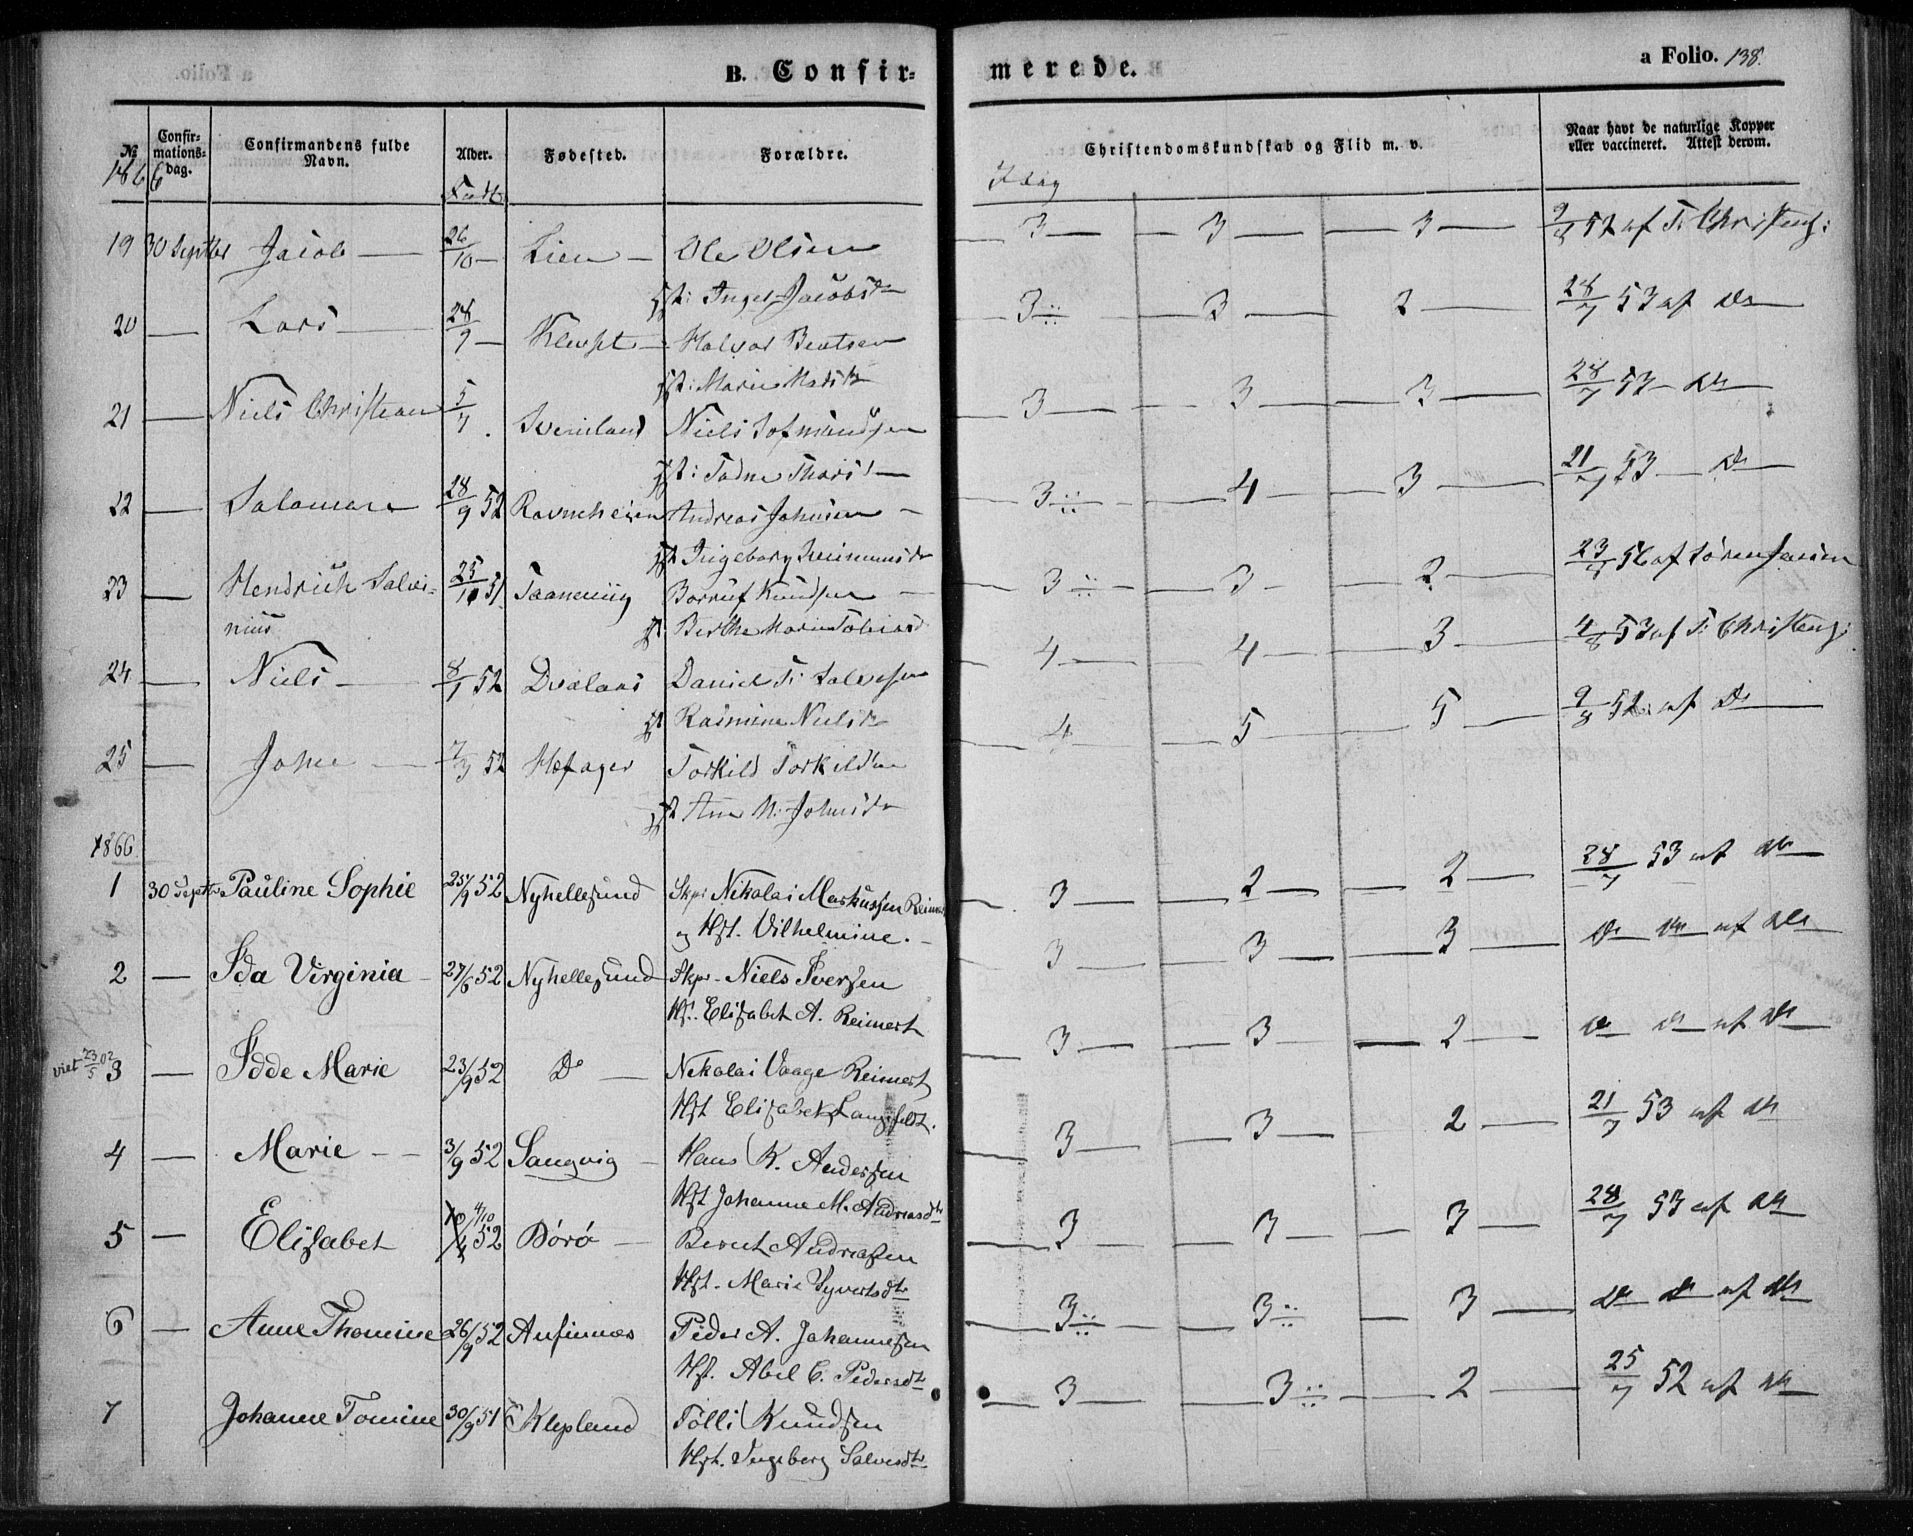 B. Confir=
merede.
a Folio. 138.
№
Confir=
mations=
dag.
Confirmandens fulde
Navn.
Alder.
Fødested.
Forældre.
Christendomskundskab og Flid m. v.
Naar havt de naturlige Kopper
eller vaccineret. Attest derom.
1866
19 30 Septbr Jacob 26/10 Lien Ole Olsen
Inger Jacobsdr
3 3 3
20 Lars 28/9 Halvor Bentsen
Marie
3 3 2 28/7 53 af Do
21 Niels Christian 5/7 Niels
3 3 3 28/7 53 Do
22 Salomon 28/9 52 Ravnheien Andreas Johnsen
Ingeborg
3 4 3 21/7 53 Do
23 Hendrich Salvi=
nius
25/10 51 Knudsen
Berthe Marie Tobiasd
3 3 2 56 af Søren Jansen
24 Niels 8/1 52 Dvalaas Daniel T. Salvesen
Rasmine Nielsdr
4 4 3 4/8 53 af T. Christens:
25 John 7/3 52 Torkild Torkildsen
Ane M. Johnsdr
4 5 5 9/8 52 af Do
1866
1 30 Septbr Pauline Sophie 25/9 52 Nyhellesund Skpr Nikolai Markussen Reimert
og Hst. Vilhelmine.
3 2 2 28/7 53 af Do
2 Ida Virginia 27/6 52 Nyhellesund Skpr Niels Iversen
Hst. Elisabet A. Reimert
3 3 3 Do Do af Do
viet 23/5 02
3 Idde Marie 23/9 52 Do Nikolai Vaage Reimert
Hst Elisabet Langfeldt.
3 3 2 Do Do af Do
4 Marie 3/9 52 Langvig Hans K. Andersen
Hst Johanne M. Andreasdtr
3 3 2 21/7 53 af Do
5 Elisabet 4/10 52 Børø Bernt Andreasen
Hst. Marie Syvertsdtr
3 3 3 28/7 53 af Do
6 Anne Thomine 26/9 52 Anfinnæs Peder A. Johannesen
Hst. Abel C. Pedersdtr
3 3 3 Do Do af Do
7 Johanne Tomine 30/9 51 Klepland Tølli Knudsen
Hst. Ingeborg Salvesdtr
3 3 2 25/7 52 af Do